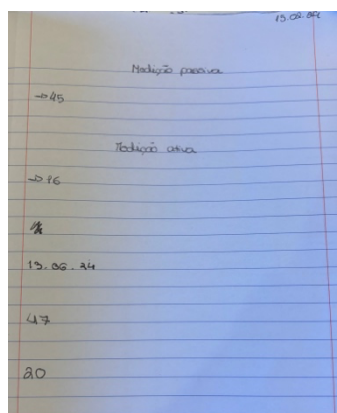 13.02.24
Medição passiva
→45
Medição ativa
→16
13.06.24
47
20